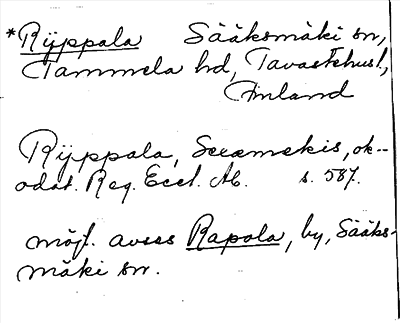 *Rijppala Sääksmäki sn,
Tammela hd, Tavastehusl.,
Finland
Rijppala, Sexmekis, ok-
odat. Reg. Eccl. Ab. s. 587.
möjl. avses Rapola, by, Sääks-
mäki sn.